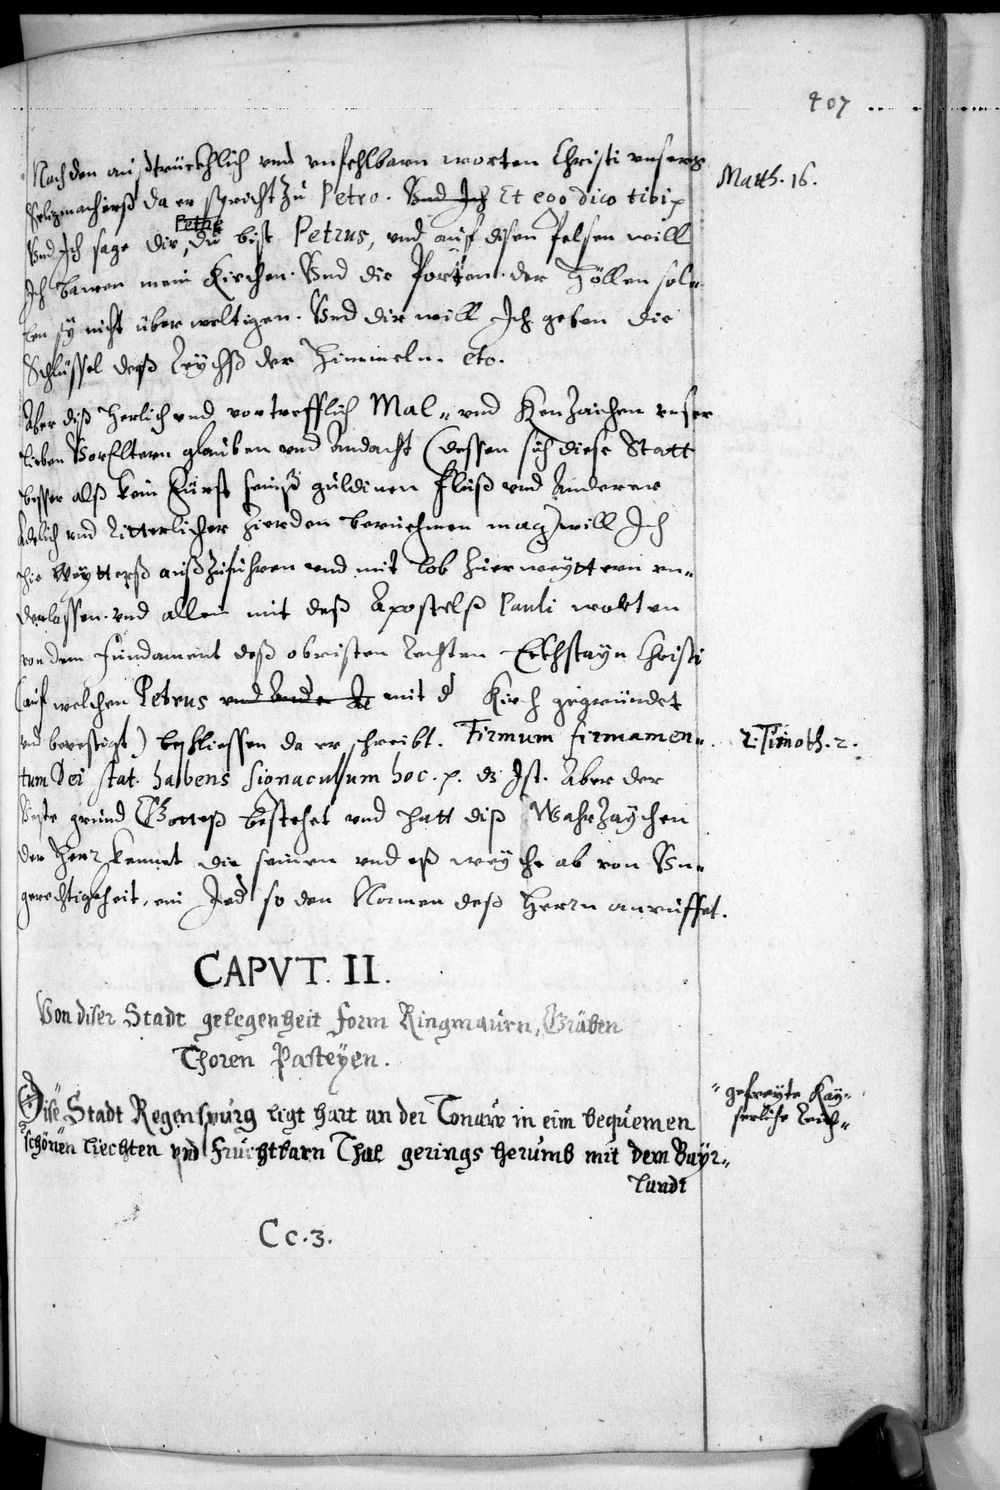 407
Nach den außtruckhlich vnd vnfehlbarn worten Christi vnsers
Seligmacherß da er spricht zu Petro. Vnd Ich Et ego dico tibi
Matth. 16.
Vnd Ich sage dir, du bist Petrus, vnd auf disen Felsen will
Ich bawen mein Kirchen. Vnd die Porten der Höllen sol„
len sy nicht überweltigen. Vnd dir will Ich geben die
Schlüssel deß Reychß der Himmeln. etc.
Aber diß Herlich vnd vortrefflich Mal„ vnd Kenzaichen vnser
lieben VorEltern glauben vnd Andacht (dessen sich diese Statt
besser alß kein Fürst seinß guldinen Fluß vnd Anderer
Adelich vnd Ritterlicher Zierden beruehmen mag) will Ich
hie weytterß außzuführen vnd mit lob hierweyttern vn„
derlassen. vnd allein mit deß Apostelß Pauli worten
von dem Fundament deß obristen rechten Eckhstayn Christi
(auf welchen Petrus vnd mit d Kirch gegründet
vnd bevestigt) beschliessen da er schreibt. Firmum firmamen„
2. Timoth. 2.
tum Dei stat. habens signaculum hoc. p. dz Ist. Aber der
Veste grund Gotteß bestehet vnd hatt diß Wahrzaychen
der Herr kennet die seinen vnd eß weyche ab von Vn„
gerechtigkheit, ein Jed so den Namen deß Herrn anruffet.
CAPVT. II.
Von diser Stadt gelegenheit form Ringmaurn, Gräben
Thoren Pasteyen.
Dise Stadt Regenspurg ligt hart an der Tonaw in eim bequemen
"gefreyte Kay„
serliche Reich„
schönen liechten vnd Fruchtbarn Thal gerings herumb mit dem Bayr„
landt
Cc. 3.